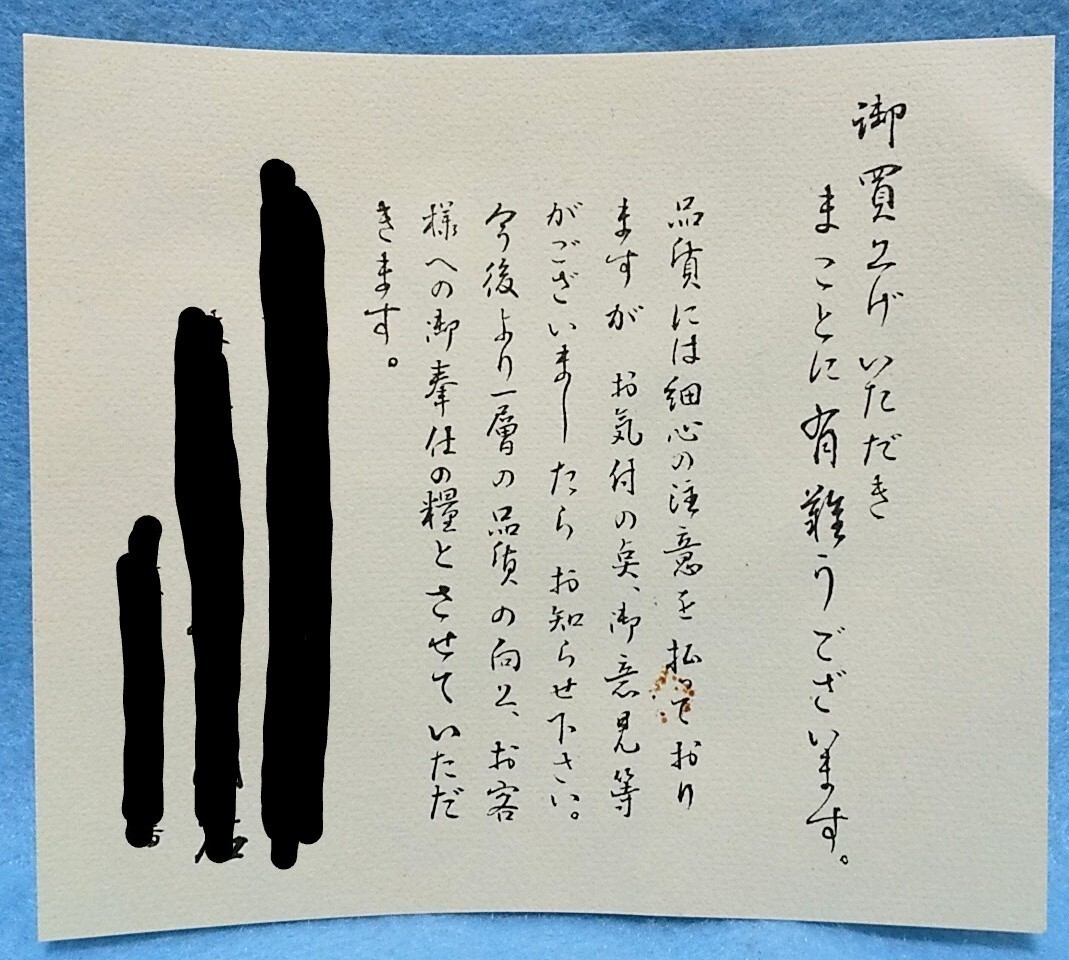 御買上げいただき
まことに有難うございます。
品質には細心の注意を払っており
ますが お気付の点、御意見等
がございましたら お知らせ下さい。
今後より一層の品質の向上、お客
様への御奉仕の糧とさせていただ
きます。